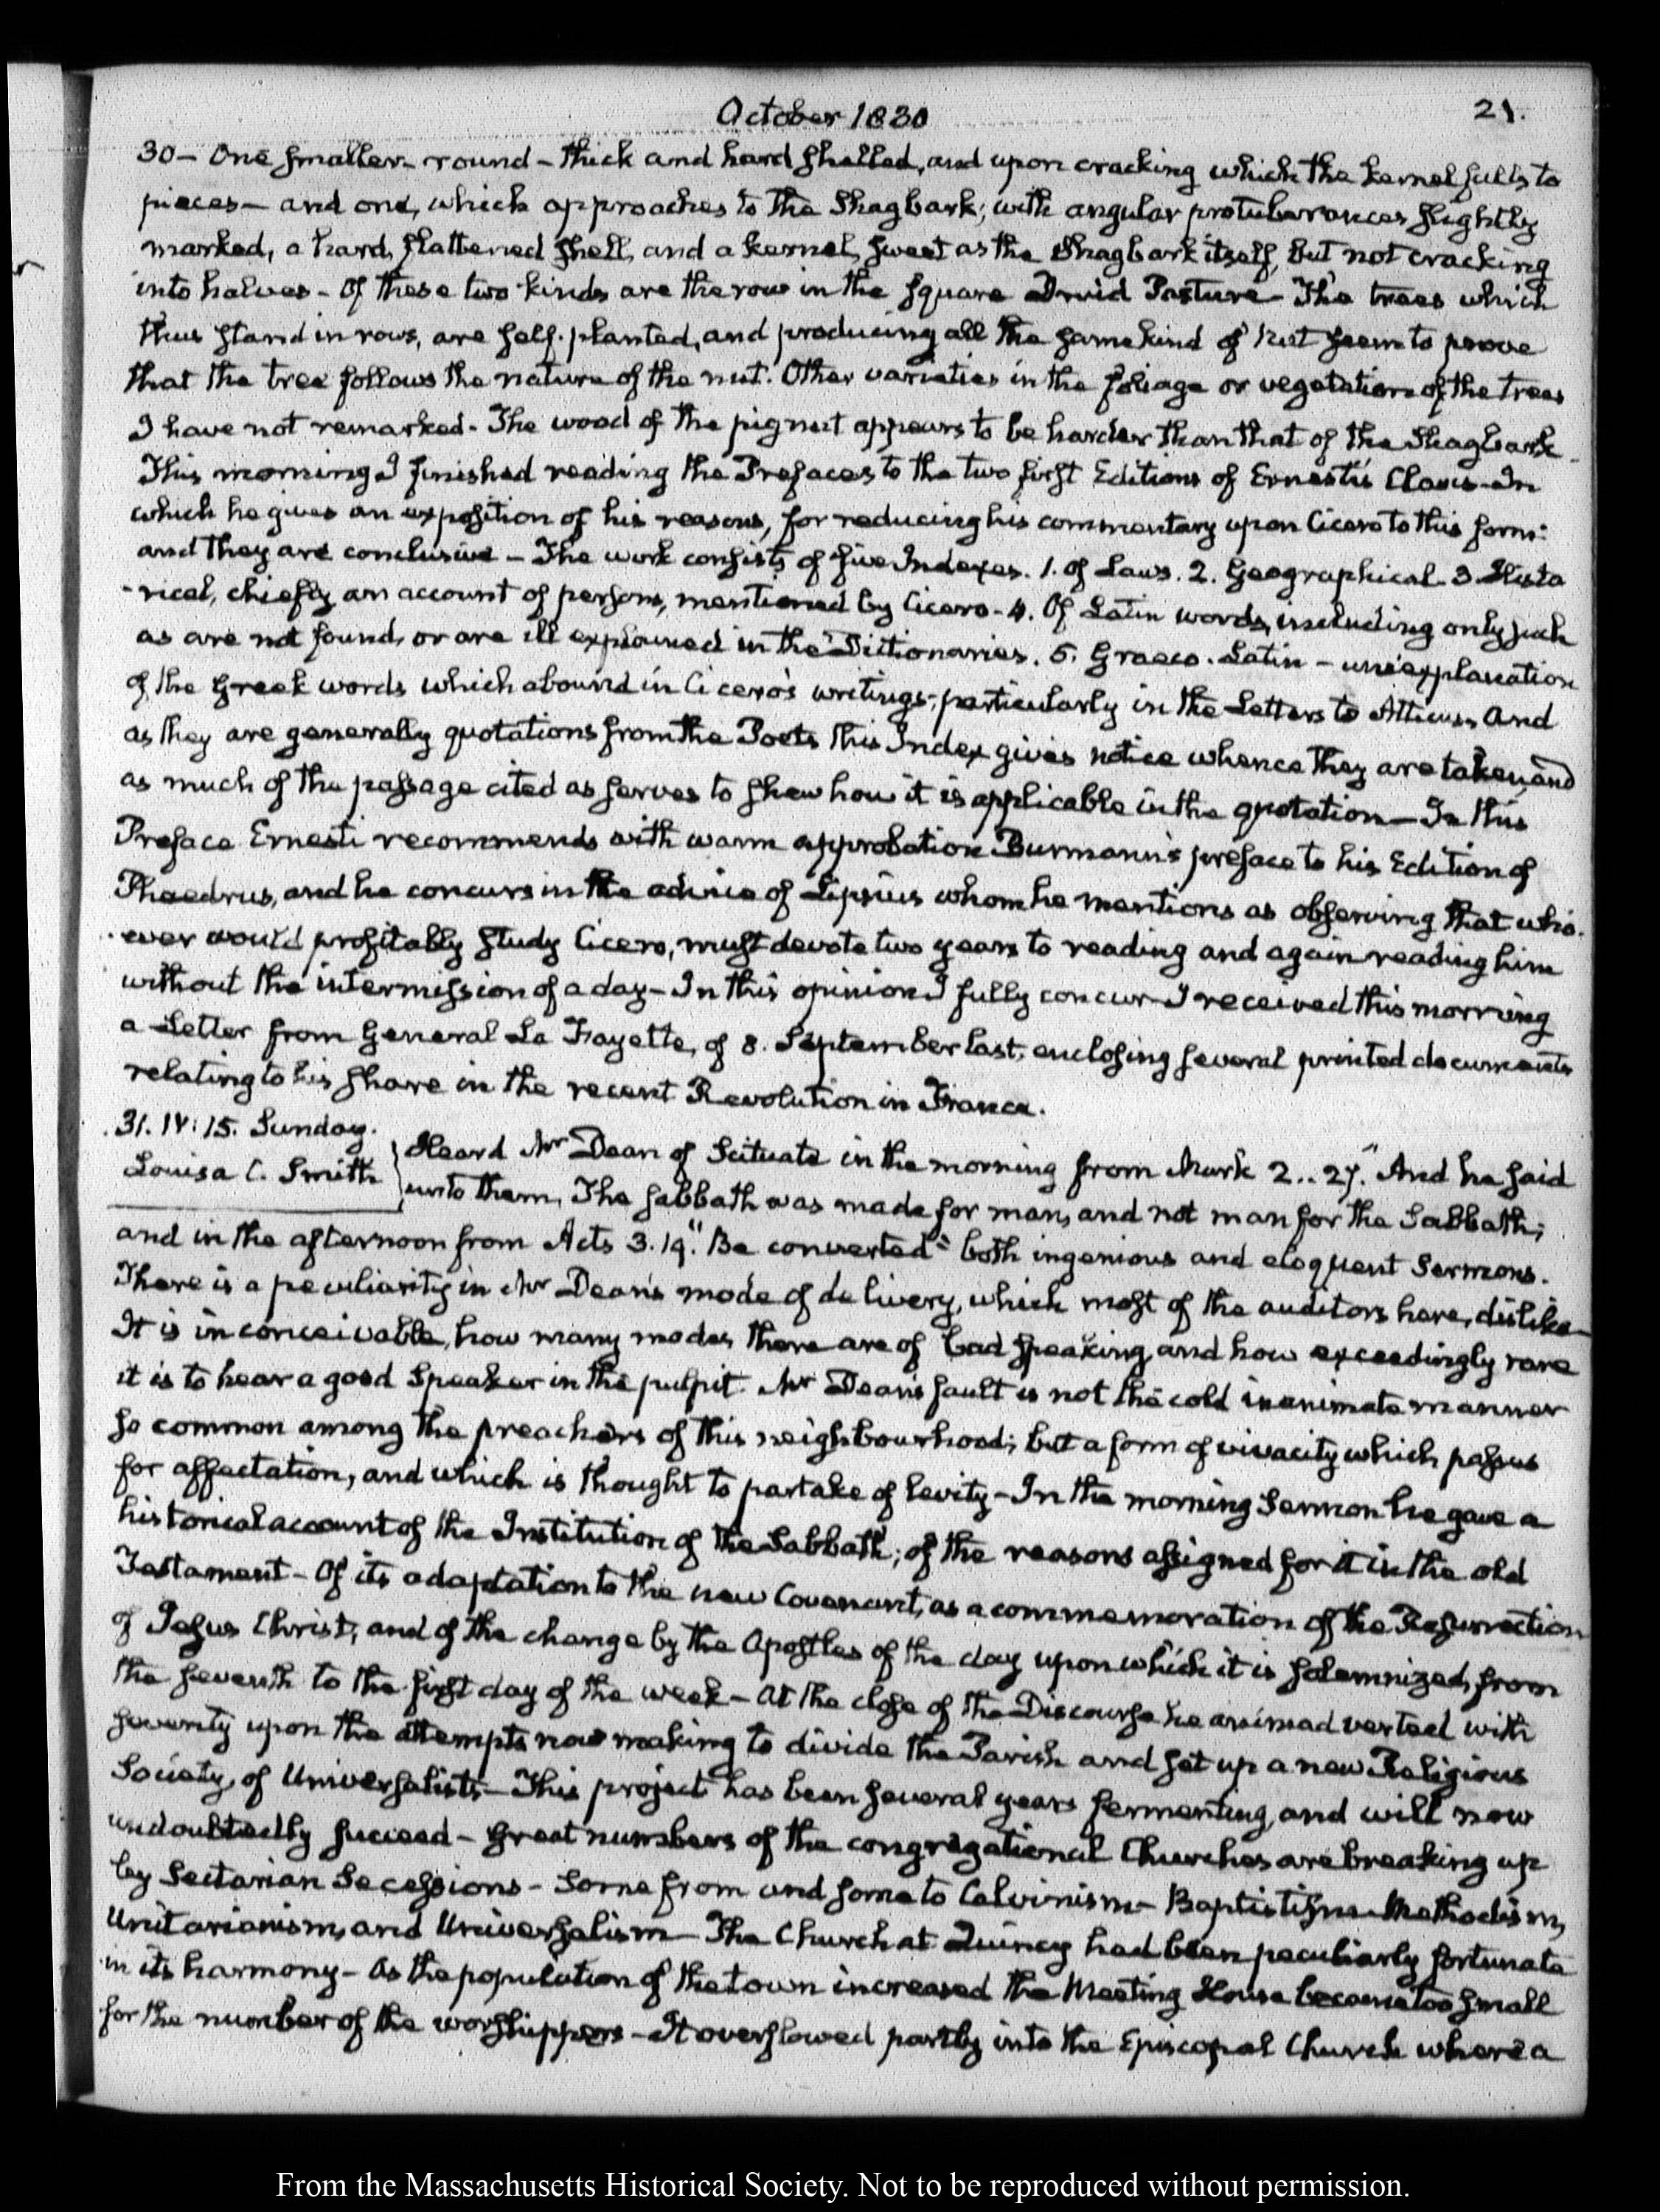 October 1830
21.
30 – One smaller – round – thick and hard shelled, and upon cracking which the kernel falls to
pieces – and one, which approaches to the Shagbark; with angular protuberances slightly
marked, a hard, flattened shell, and a kernel, sweet as the Shagbark itself, but not cracking
into halves – Of these two kinds are the row in the square Druid Pasture – The trees which
thus stand in rows, are self-planted, and producing all the same kind of Nut seem to prove
that the tree follows the nature of the nut. Other varieties in the foliage or vegetation of the trees
I have not remarked – The wood of the pignut appears to be harder than that of the Shagbark –
This morning I finished reading the Prefaces to the two first Editions of Ernesti's Clavis – In
which he gives an exposition of his reasons, for reducing his commentary upon Cicero to this form:
and they are conclusive – The work consists of five Indexes. 1. Of Laws. 2. Geographical – 3 Histo
-rical, chiefly an account of persons, mentioned by Cicero – 4. Of Latin words, including only such
as are not found, or are ill explained in the Dictionaries. 5. Graeco-Latin – an explanation
of the Greek words which abound in Cicero's writings; particularly in the Letters to Atticus, And
as they are generally quotations from the Poets this Index gives notice whence they are taken, and
as much of the passage cited as serves to shew how it is applicable in the quotation – In this
Preface Ernesti recommends with warm approbation Burmann's preface to his Edition of
Phaedrus, and he concurs in the advice of Lipsius whom he mentions as observing that who-
-ever would profitably study Cicero, must devote two years to reading and again reading him
without the intermission of a day – In this opinion I fully concur – I received this morning
a Letter from General La Fayette, of 8. September last, enclosing several printed documents
relating to his share in the recent Revolution in France.
31. IV:15. Sunday.
Louisa C. Smith
Heard Mr Dean of Scituate in the morning from Mark 2..27. "And he said
unto them, The Sabbath was made for man, and not man for the Sabbath;
and in the afternoon from Acts 3.19. "Be converted" both ingenious and eloquent Sermons.
There is a peculiarity in Mr Dean's mode of delivery, which most of the auditors here, dislike –
It is inconceivable, how many modes there are of bad speaking, and how exceedingly rare
it is to hear a good Speaker in the pulpit. Mr Dean's fault is not the cold inanimate manner
so common among the preachers of this neighbourhood; but a form of vivacity which passes
for affectation, and which is thought to partake of levity – In the morning Sermon he gave a
historical account of the Institution of the Sabbath; of the reasons assigned for it in the old
Testament – Of its adaptation to the new Covenant, as a commemoration of the Resurrection
of Jesus Christ, and of the change by the Apostles of the day upon which it is solemnized, from
the seventh to the first day of the week – At the close of the Discourse he animadverted with
severity upon the attempts now making to divide the Parish and set up a new Religious
Society, of Universalists – This project has been several years fermenting, and will now
undoubtedly succeed – Great numbers of the congregational Churches are breaking up
by Sectarian Secessions – Some from and some to Calvinism – Baptistism – Methodism,
Unitarianism, and Universalism – The Church at Quincy had been peculiarly fortunate
in its harmony – As the population of the town increased the Meeting House became too small
for the number of the worshippers – It overflowed partly into the Episcopal Church where a
From the Massachusetts Historical Society. Not to be reproduced without permission.